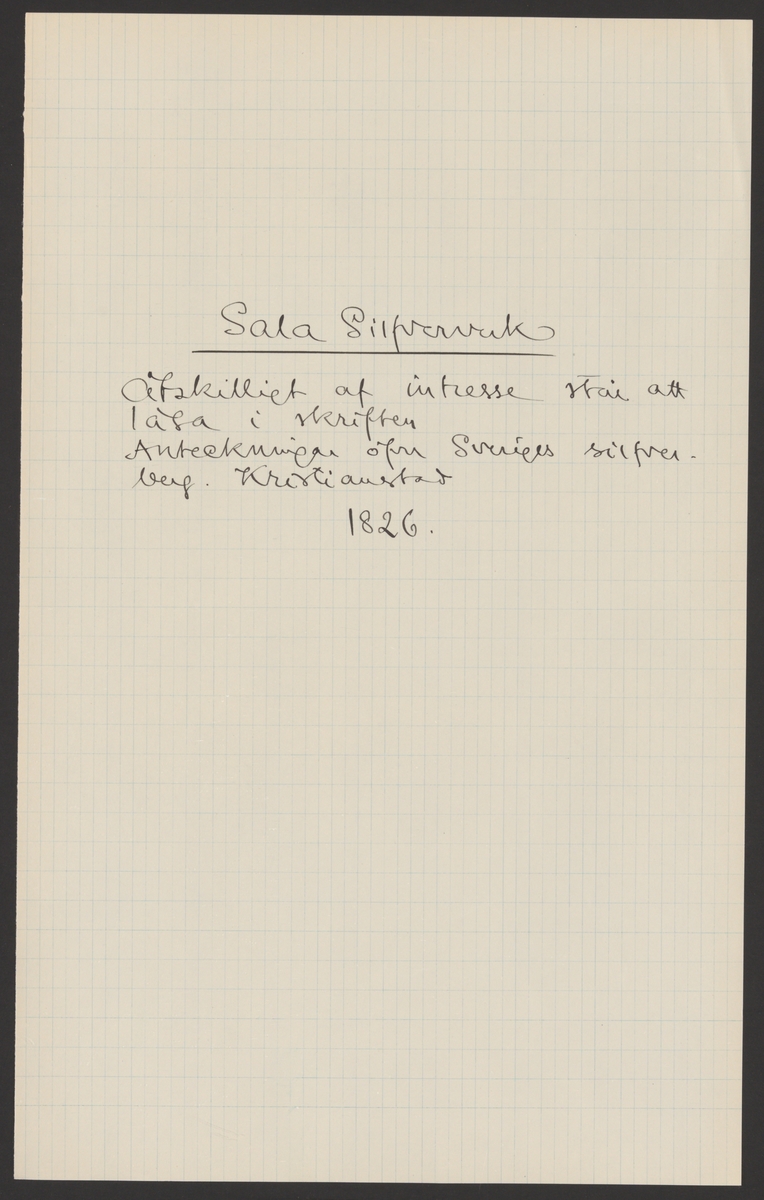 Sala Silfververk
Åtskilligt af intresse står att
läsa i skriften
Anteckningar öfver Sveriges silfver-
berg. Kristianstad
1826.